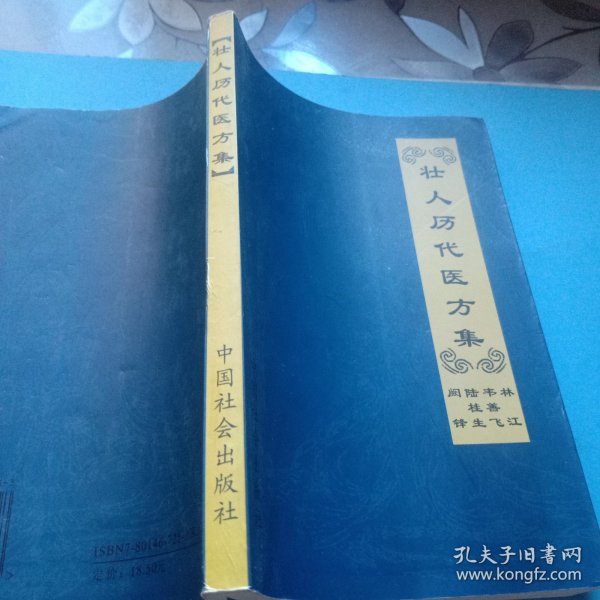 【壮人历代医方集】
中国社会出版社
壮人历代医方集
阙 陆 韦 林
桂 善
锋 生 飞 江
定价:18.50元
孔夫子旧书网
www.kongfz.com